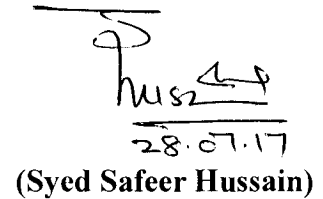 28.07.17
(Syed Safeer Hussain)